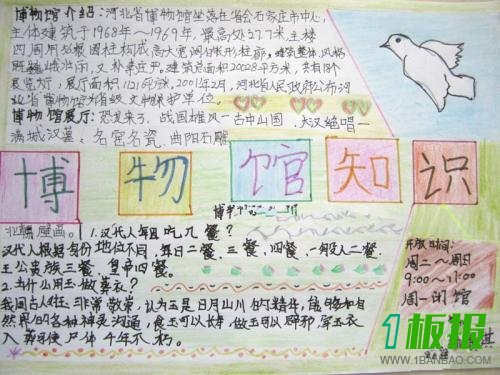 博物馆介绍：河北省博物馆坐落在省会石家庄市中心，
主体建筑于1968年～1969年，最高处27.7米，主楼
四周用
20028平方米，共有18个
展览厅，展厅面积11216平方米，2001年2月，河北省人民政府公布河
北省博物馆为省级文物保护单位。
博物馆展厅：恐龙来了、战国雄风—古中山国、大汉绝唱—
满城汉墓、名窑名瓷、曲阳石雕
博 物 馆 知 识
1.汉代人每日吃几餐？
汉代人根据身份地位不同，每日二餐、三餐、四餐，一般人二餐、
王公贵族三餐、皇帝四餐。
2.为什么用玉做葬衣？
我国古人对玉非常敬崇，认为玉是日月山川的精华，能够和自
然界的各种神灵沟通，食玉可以长寿，做玉可以辟邪，穿玉衣
入葬可使尸体千年不朽。
开放时间：
周二～周日
9:00～11:00
周一闭馆
1板报
WWW.1BANBAO.COM